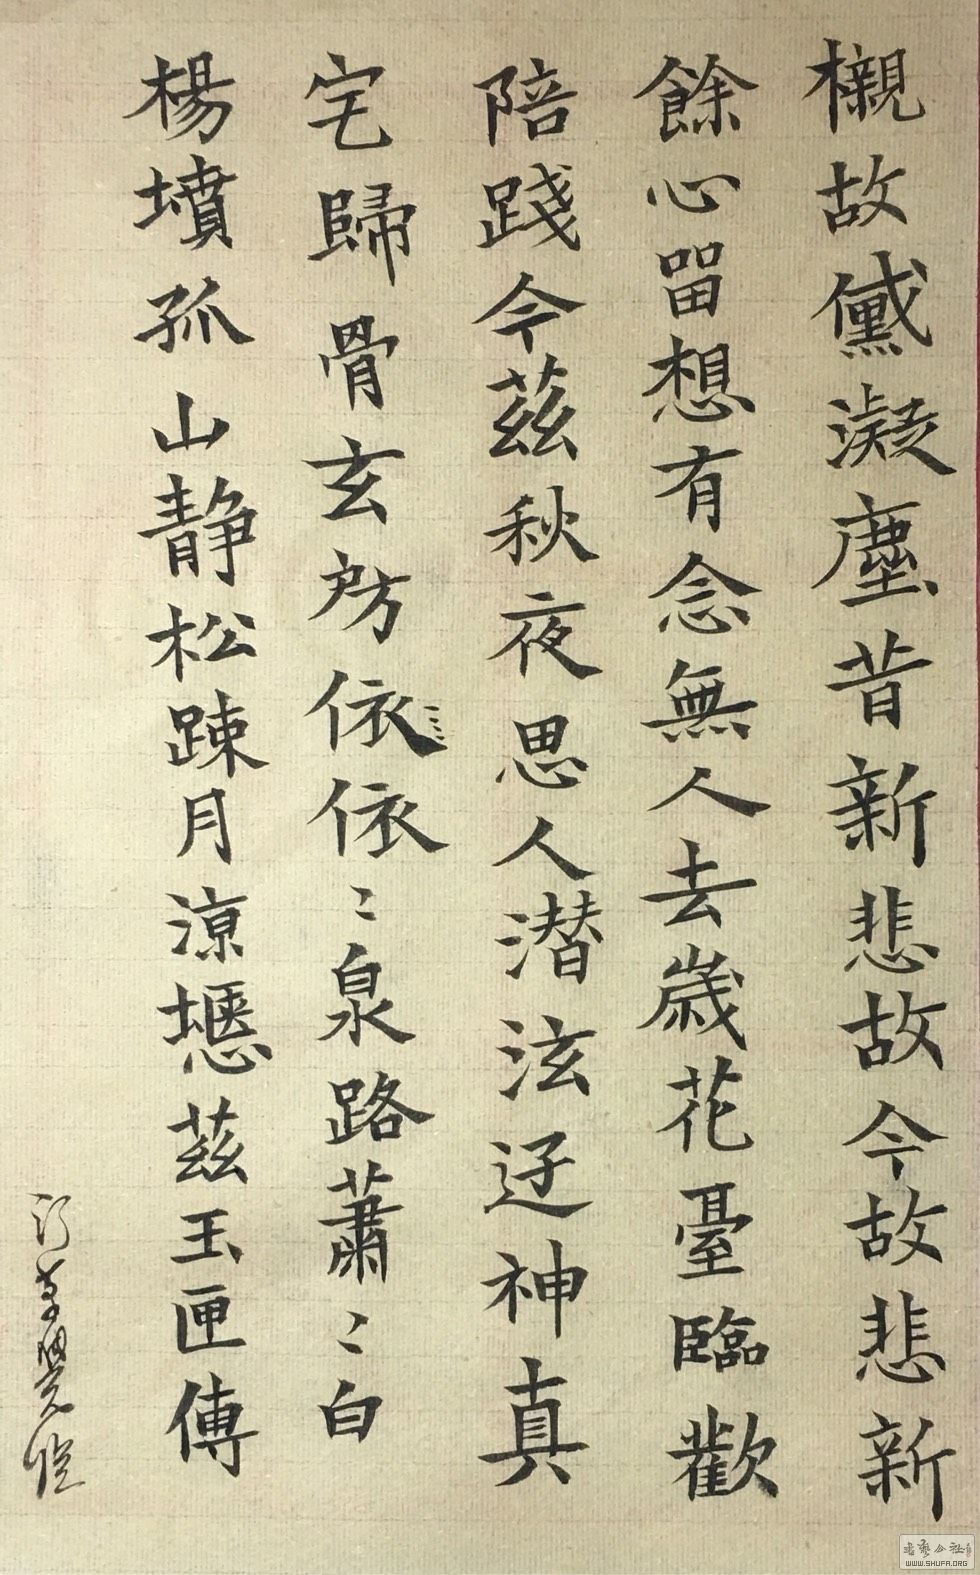 櫬故黛凝塵昔新悲故今故悲新
餘心留想有念無人去歲花臺臨歡
陪踐今茲秋夜思人潛泫迓神真
宅歸骨玄房依依〻泉路蕭〻白
楊墳孤山静松踈月涼慝茲玉匣傳
書法公社
WWW.SHUFA.ORG